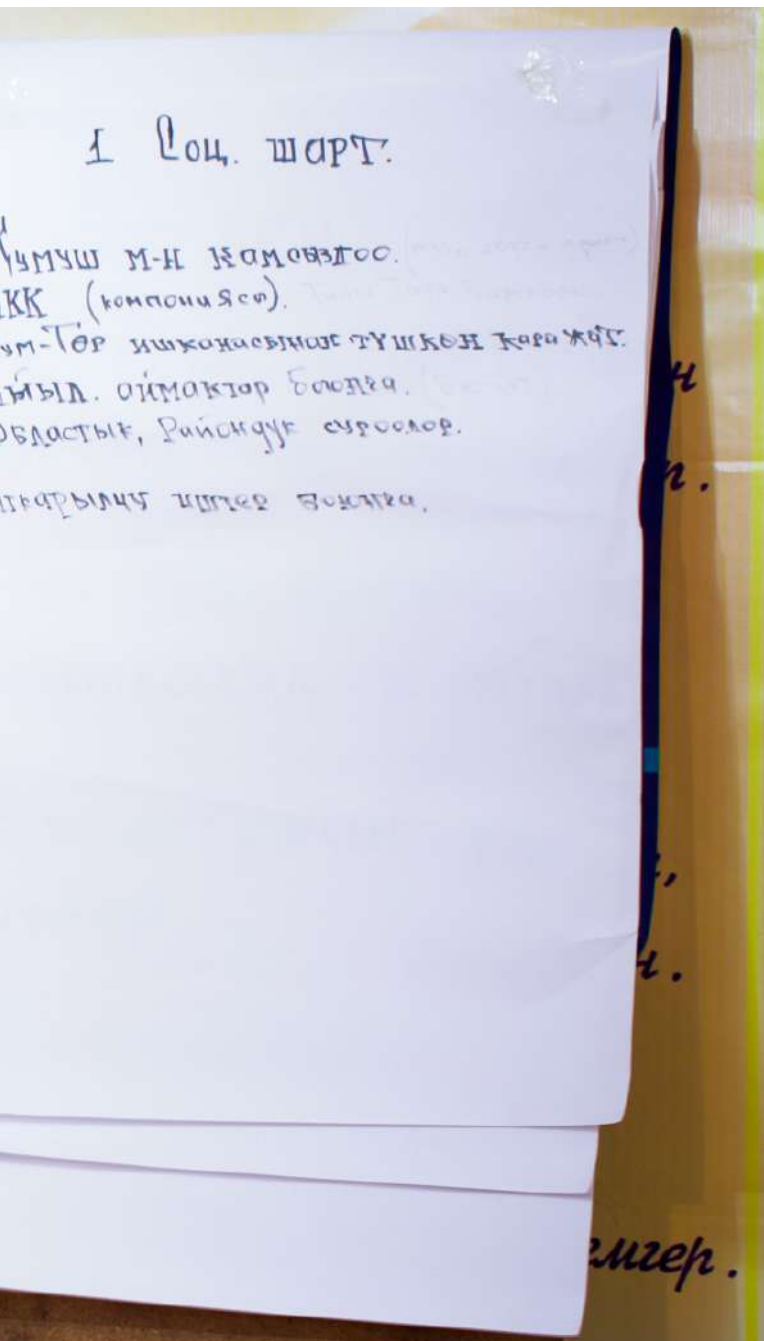 1 Соц. шарт.
умуш м-н камсыздоо.
КК (компаниясы).
ум-Төр ишканасынан түшкөн каражат.
айыл. аймактар боюнча.
Областык, Райондук суроолор.
аткарылчу иштер боюнча.
н
.
,
н.
емгер.